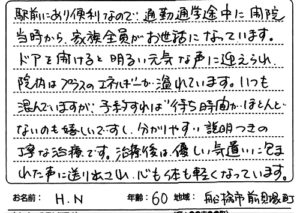 駅前にあり便利なので、通勤通学途中に開院
当時から、家族全員がお世話になっています。
ドアを開けると明るい元気な声に迎えられ、
院内はプラスのエネルギーが溢れています。いつも
混んでいますが、予約すれば待ち時間がほとんど
ないのも嬉しいですし、分かりやすい説明つきの
丁寧な治療です。治療後は、優しい気遣いに包ま
れた声に送り出され、心も体も軽くなっています。
お名前: H.N 年齢: 60 地域: 船橋市前原町